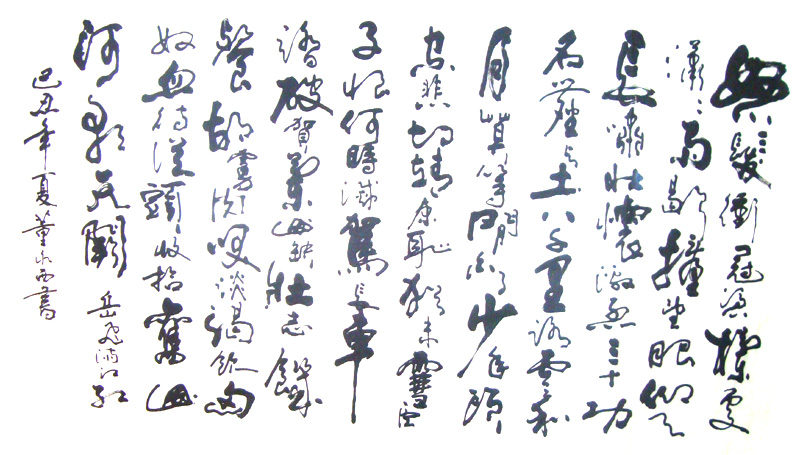 怒髮衝冠憑欄處
瀟瀟雨歇擡望眼仰天
長嘯壯懷激烈三十功
名塵與土八千里路雲和
月莫等閒白了少年頭
空悲切靖康恥猶未雪臣
子恨何時滅駕長車
踏破賀蘭山缺壯志飢
餐胡虜肉笑談渴飲匈
奴血待從頭收拾舊山
河朝天闕 岳飛滿江紅
己丑年夏董書